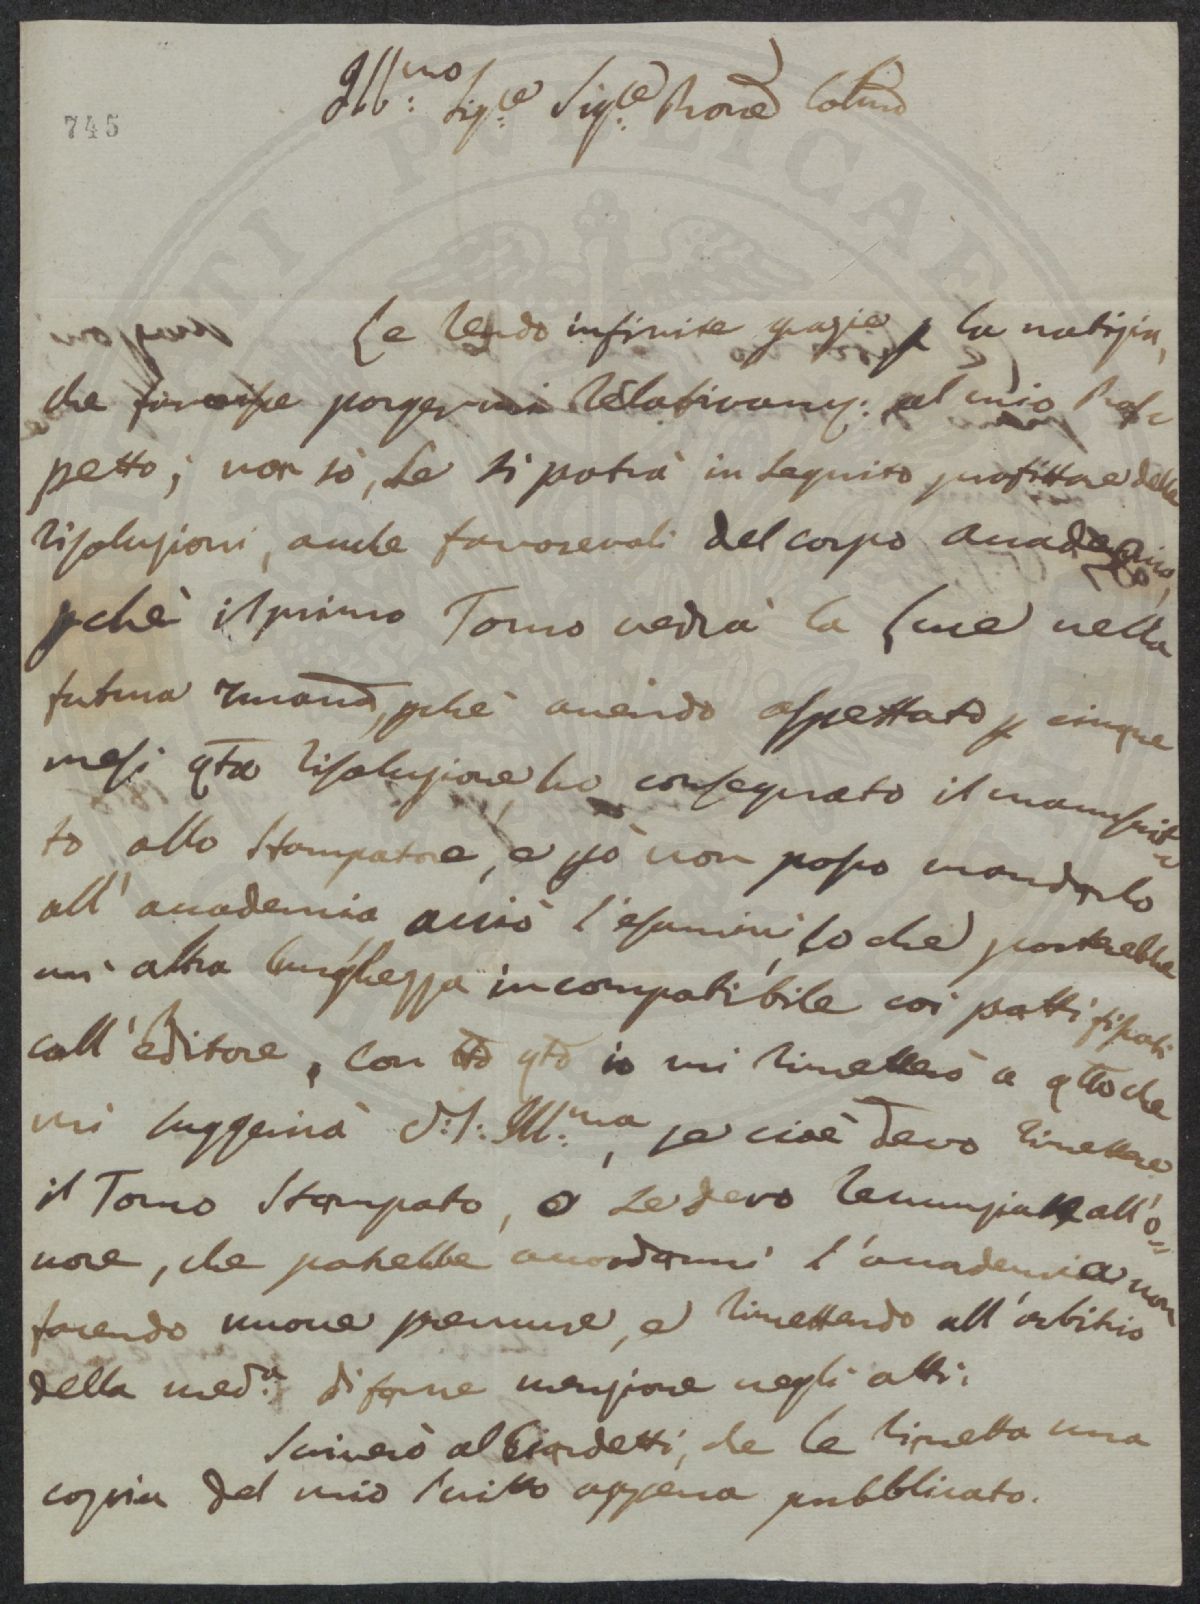 Ill:mo Sig:re Sig:re Prone Colmo
745
Le rendo infinite grazie p la notizia,
che favorisce porgermi relativam: al mio Pros=
petto; non sò, se si potrà in seguito profittare delle
risoluzioni, anche favorevoli del corpo Accademico,
pchè il primo Tomo vedrà la luce nella
futura 7mana, pchè avendo aspettato p cinque
mesi qta risoluzione ho consegnato il manuscrit=
to allo Stampatore, e pò non posso mandarlo
all'accademia acciò l'esamini, lo che porterebbe
un'altra lunghezza incompatibile coi patti fissati
coll'editore, con tto qto io mi rimetterò a qtto che
mi suggerirà V:S: Ill:ma, se cioè devo rimettere
il Tomo Stampato, o se devo renunziare all'o=
nore, che potrebbe accordarmi l'accademia non
facendo nuove premure, e rimettendo all'arbitrio
della med:a di farne menzione negli atti.
Scriverò al Giardetti, che le rimetta una
copia del mio scritto appena pubblicato.